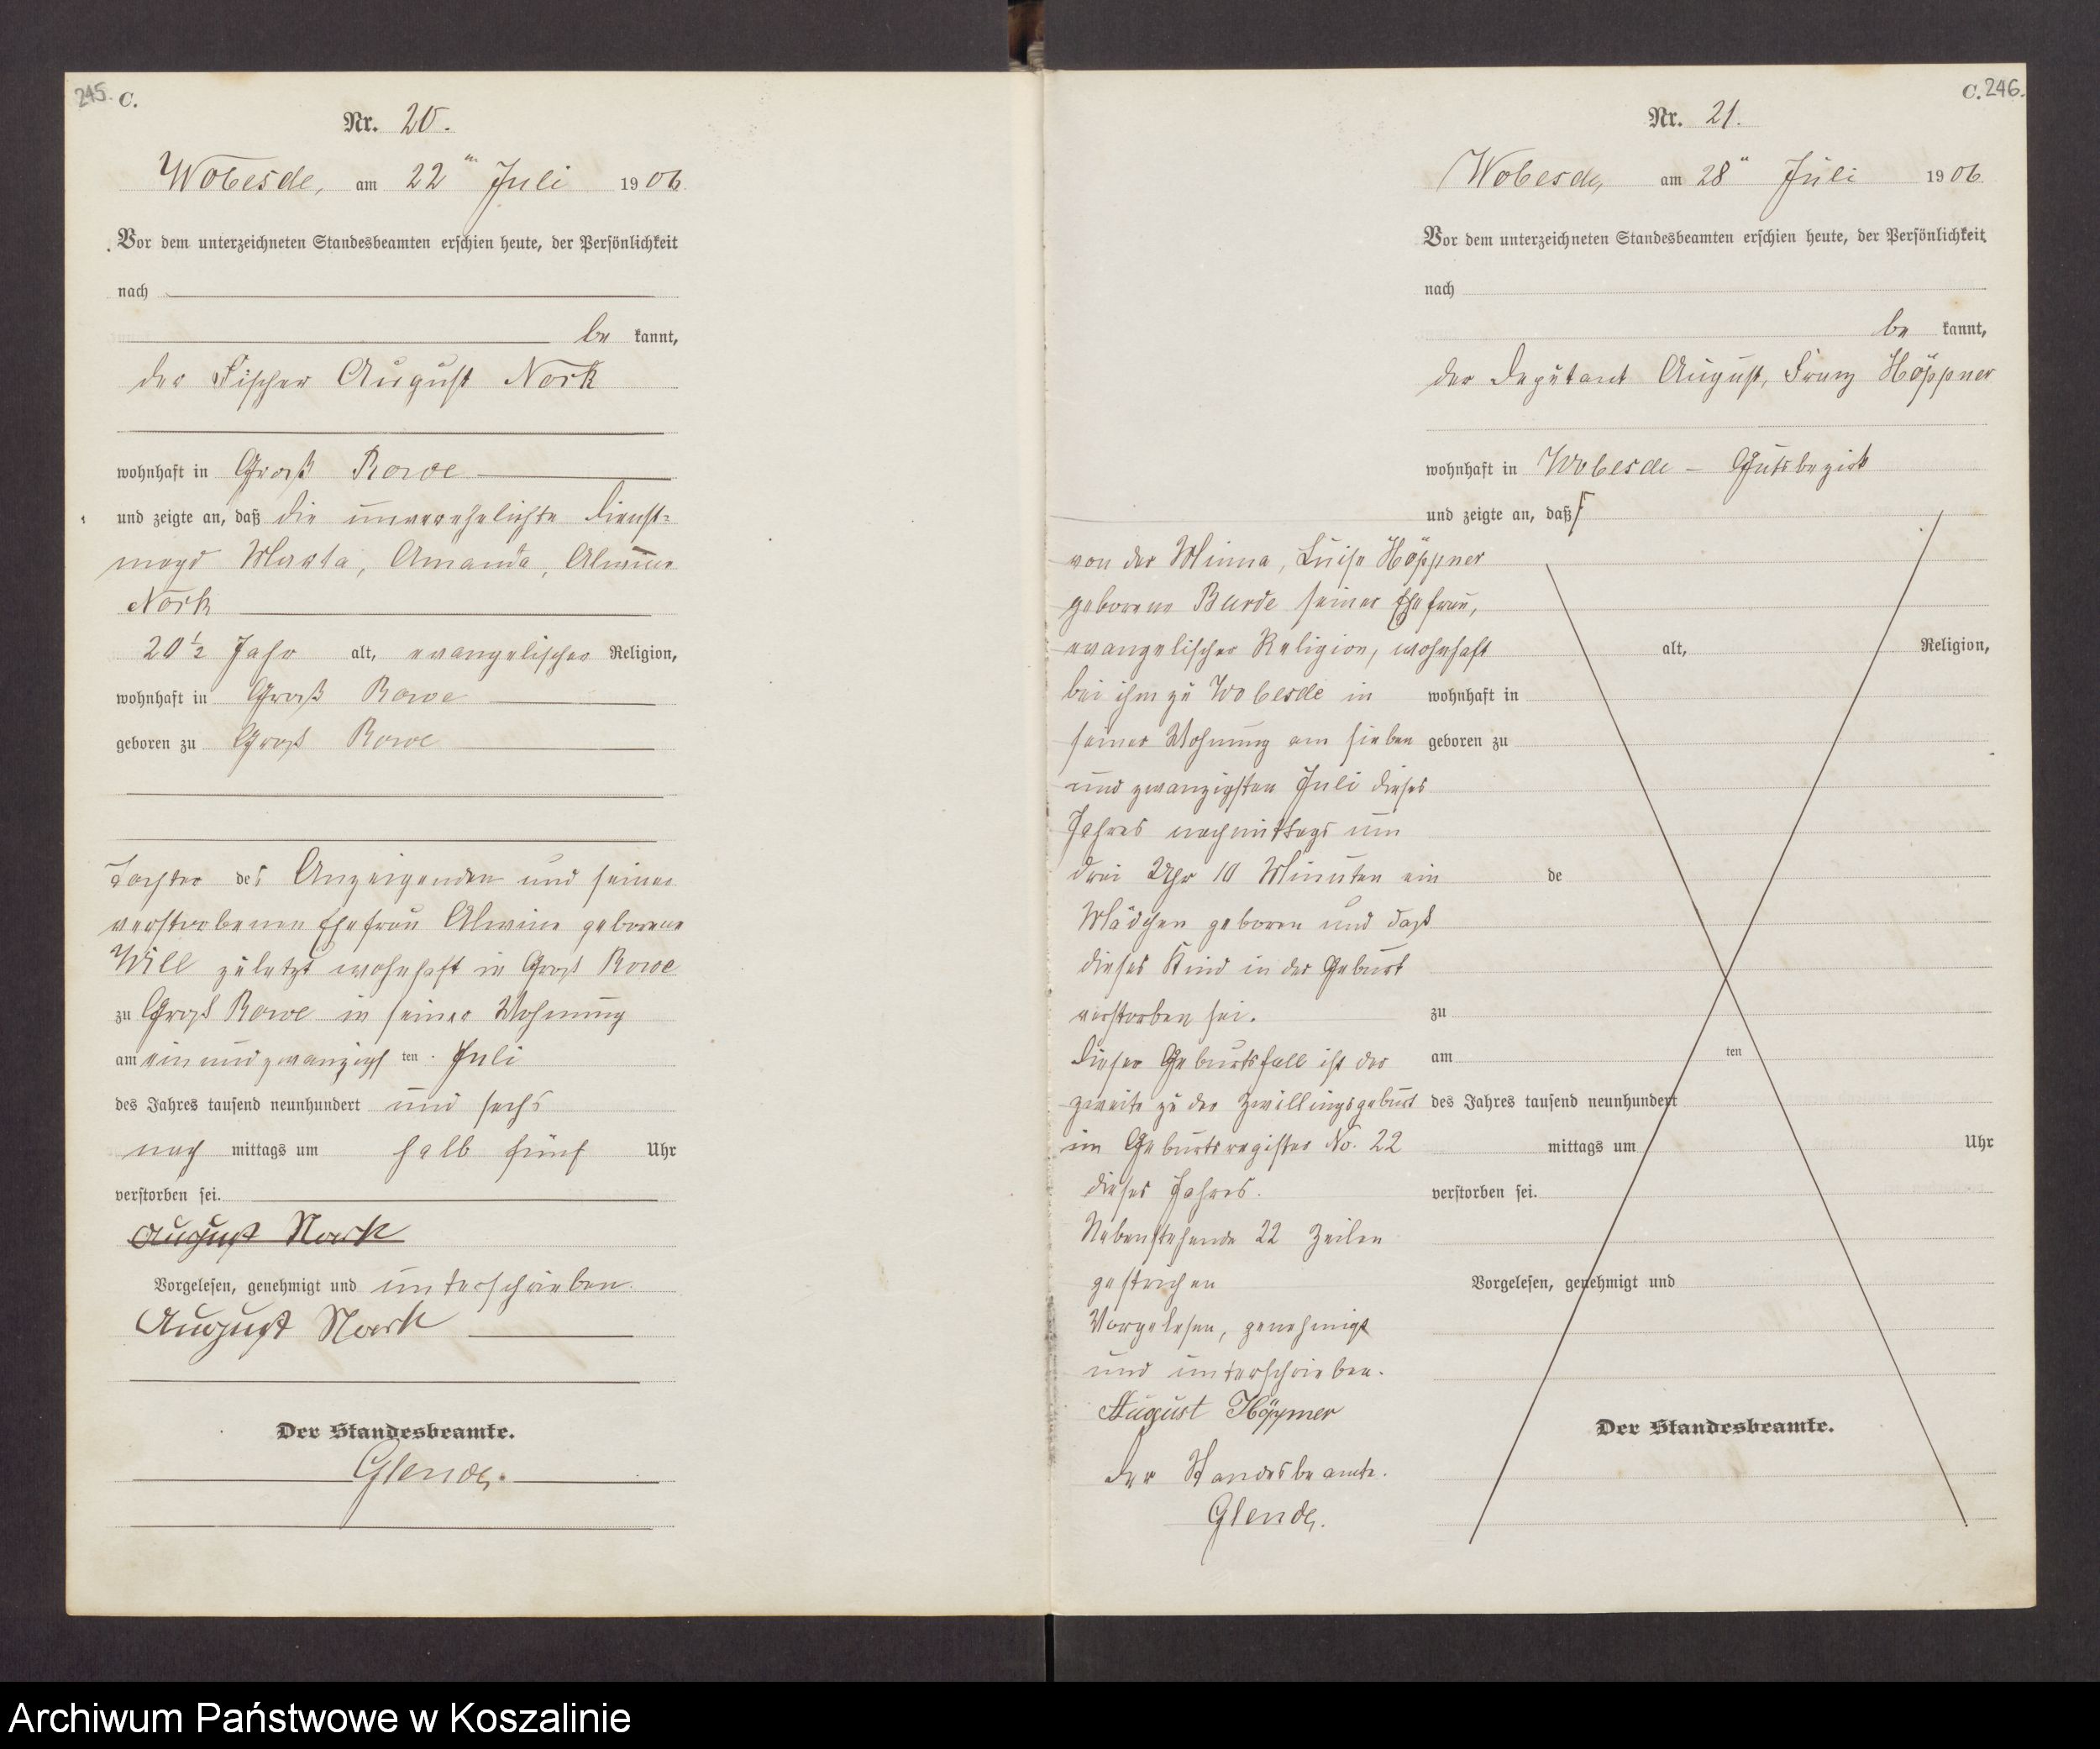 245. C.
Nr. 20.
Wobesde, am 22ten Juli 1906
Vor dem unterzeichneten Standesbeamten erschien heute, der Persönlichkeit
nach
be kannt,
der Fischer August Nork
wohnhaft in Groß Rowe
und zeigte an, daß die unverehelichte Dienst=
magd Marta, Amanda, Alwine
Nork
20 1/2 Jahr alt, evangelischer Religion,
wohnhaft in Groß Rowe
geboren zu Groß Rowe
Tochter des Anzeigenden und seiner
verstorbenen Ehefrau Alwine geborene
Will zuletzt wohnhaft in Groß Rowe
zu Groß Rowe in seiner Wohnung
am ein und zwanzigsten Juli
des Jahres tausend neunhundert und sechs
nach mittags um halb fünf Uhr
verstorben sei.
August Nork
Vorgelesen, genehmigt und unterschrieben.
August Nork
Der Standesbeamte.
Glende.
C. 246.
Nr. 21.
Wobesde, am 28" Juli 1906
Vor dem unterzeichneten Standesbeamten erschien heute, der Persönlichkeit
nach
be kannt,
der Deputant August, Franz Höppner
wohnhaft in Wobesde - Gutsbezirk
und zeigte an, daß
von der Minna, Luise Höppner
geborene Burde seiner Ehefrau,
evangelischer Religion, wohnhaft
bei ihm zu Wobesde in
seiner Wohnung am sieben
und zwanzigsten Juli dieses
Jahres nachmittags um
drei Uhr 10 Minuten ein
Mädchen geboren und daß
dieses Kind in der Geburt
verstorben sei.
Dieser Geburtsfall ist der
zweite zu der Zwillingsgeburt
im Geburtsregister No. 22
dieses Jahres.
Nebenstehende 22 Zeilen
gestrichen
Vorgelesen, genehmigt
und unterschrieben.
August Höppner
Der Standesbeamte.
Glende.
alt, Religion,
wohnhaft in
geboren zu
de
zu
am ten
des Jahres tausend neunhundert
mittags um Uhr
verstorben sei.
Vorgelesen, genehmigt und
Der Standesbeamte.
Archiwum Państwowe w Koszalinie